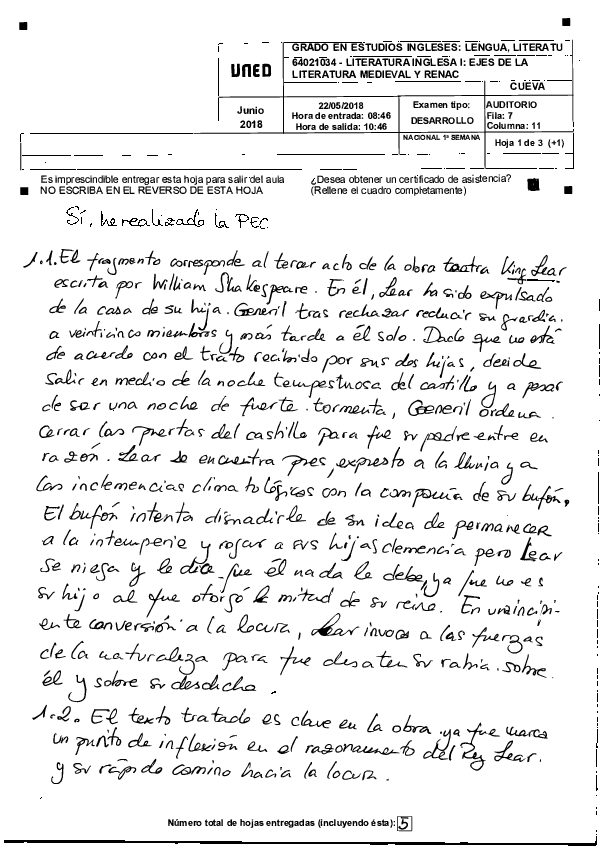 UNED
GRADO EN ESTUDIOS INGLESES: LENGUA, LITERATU
64021034 - LITERATURA INGLESA I: EJES DE LA
LITERATURA MEDIEVAL Y RENAC
CUEVA
Junio
2018
22/05/2018
Hora de entrada: 08:46
Hora de salida: 10:46
Examen tipo:
DESARROLLO
AUDITORIO
Fila: 7
Columna: 11
NACIONAL 1ª SEMANA
Hoja 1 de 3 (+1)
Es imprescindible entregar esta hoja para salir del aula
NO ESCRIBA EN EL REVERSO DE ESTA HOJA
¿Desea obtener un certificado de asistencia?
(Rellene el cuadro completamente)
Sí, he realizado la PEC
1.1. El fragmento corresponde al tercer acto de la obra teatra King Lear
escrita por William Shakespeare. En él, Lear ha sido expulsado
de la casa de su hija. Generil tras rechazar reducir su guardia
a veinticinco miembros y más tarde a él solo. Dado que no está
de acuerdo con el trato recibido por sus dos hijas, decide
salir en medio de la noche tempestuosa del castillo y a pesar
de ser una noche de fuerte tormenta, Generil ordena
cerrar las puertas del castillo para que su padre entre en
razón. Lear se encuentra pues, expuesto a la lluvia y a
las inclemencias climatológicas con la compañía de su bufón.
El bufón intenta disuadirle de su idea de permanecer
a la intemperie y rogar a sus hijas clemencia pero Lear
se niega y le dice que él nada le debe, ya que no es
su hijo al que otorgó la mitad de su reino. En una incipi-
ente conversión a la locura, Lear invoca a las fuerzas
de la naturaleza para que desaten su rabia sobre
él y sobre su desdicha.
1.2. El texto tratado es clave en la obra ya que marca
un punto de inflexión en el razonamiento del Rey Lear
y su rápido camino hacia la locura.
Número total de hojas entregadas (incluyendo ésta): 5